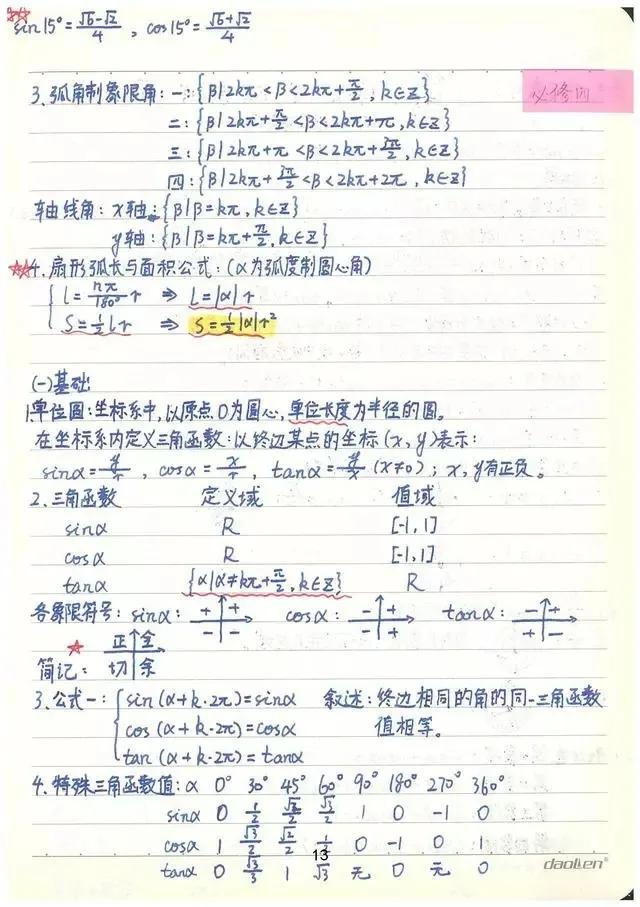 sin15°=(√6-√2)/4 , cos15°=(√6+√2)/4
必修四
3.弧角制象限角:一:{β|2kπ<β<2kπ+π/2,k∈Z}
二:{β|2kπ+π/2<β<2kπ+π,k∈Z}
三:{β|2kπ+π<β<2kπ+3π/2,k∈Z}
四:{β|2kπ+3π/2<β<2kπ+2π,k∈Z}
轴线角:x轴:{β|β=kπ,k∈Z}
y轴:{β|β=kπ+π/2,k∈Z}
4.扇形弧长与面积公式:(α为弧度制圆心角)
l=nπ/180° r ⇒ l=|α|r
S=1/2 lr ⇒ S=1/2|α|r²
(一)基础
1.单位圆:坐标系中,以原点O为圆心,单位长度为半径的圆。
在坐标系内定义三角函数:以终边某点的坐标(x,y)表示:
sinα=y/r , cosα=x/r , tanα=y/x (x≠0);x,y有正负。
2.三角函数 定义域 值域
sinα R [-1,1]
cosα R [-1,1]
tanα {α|α≠kπ+π/2,k∈Z} R
各象限符号:sinα: + + cosα: - + tanα: - +
- - - + + -
正 全
简记: 切 余
3.公式一: sin(α+k·2π)=sinα 叙述:终边相同的角的同一三角函数
cos(α+k·2π)=cosα 值相等。
tan(α+k·2π)=tanα
4.特殊三角函数值:α 0° 30° 45° 60° 90° 180° 270° 360°
sinα 0 1/2 √2/2 √3/2 1 0 -1 0
cosα 1 √3/2 √2/2 1/2 0 -1 0 1
13
tanα 0 √3/3 1 √3 无 0 无 0
daolen